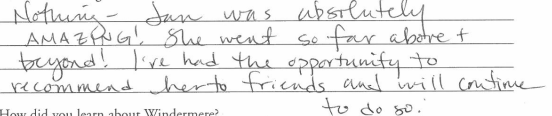 Nothing - Jan was absolutely
AMAZING! She went so far above +
beyond! I've had the opportunity to
recommend her to friends and will continue
to do so.
How did you learn about Windermere?